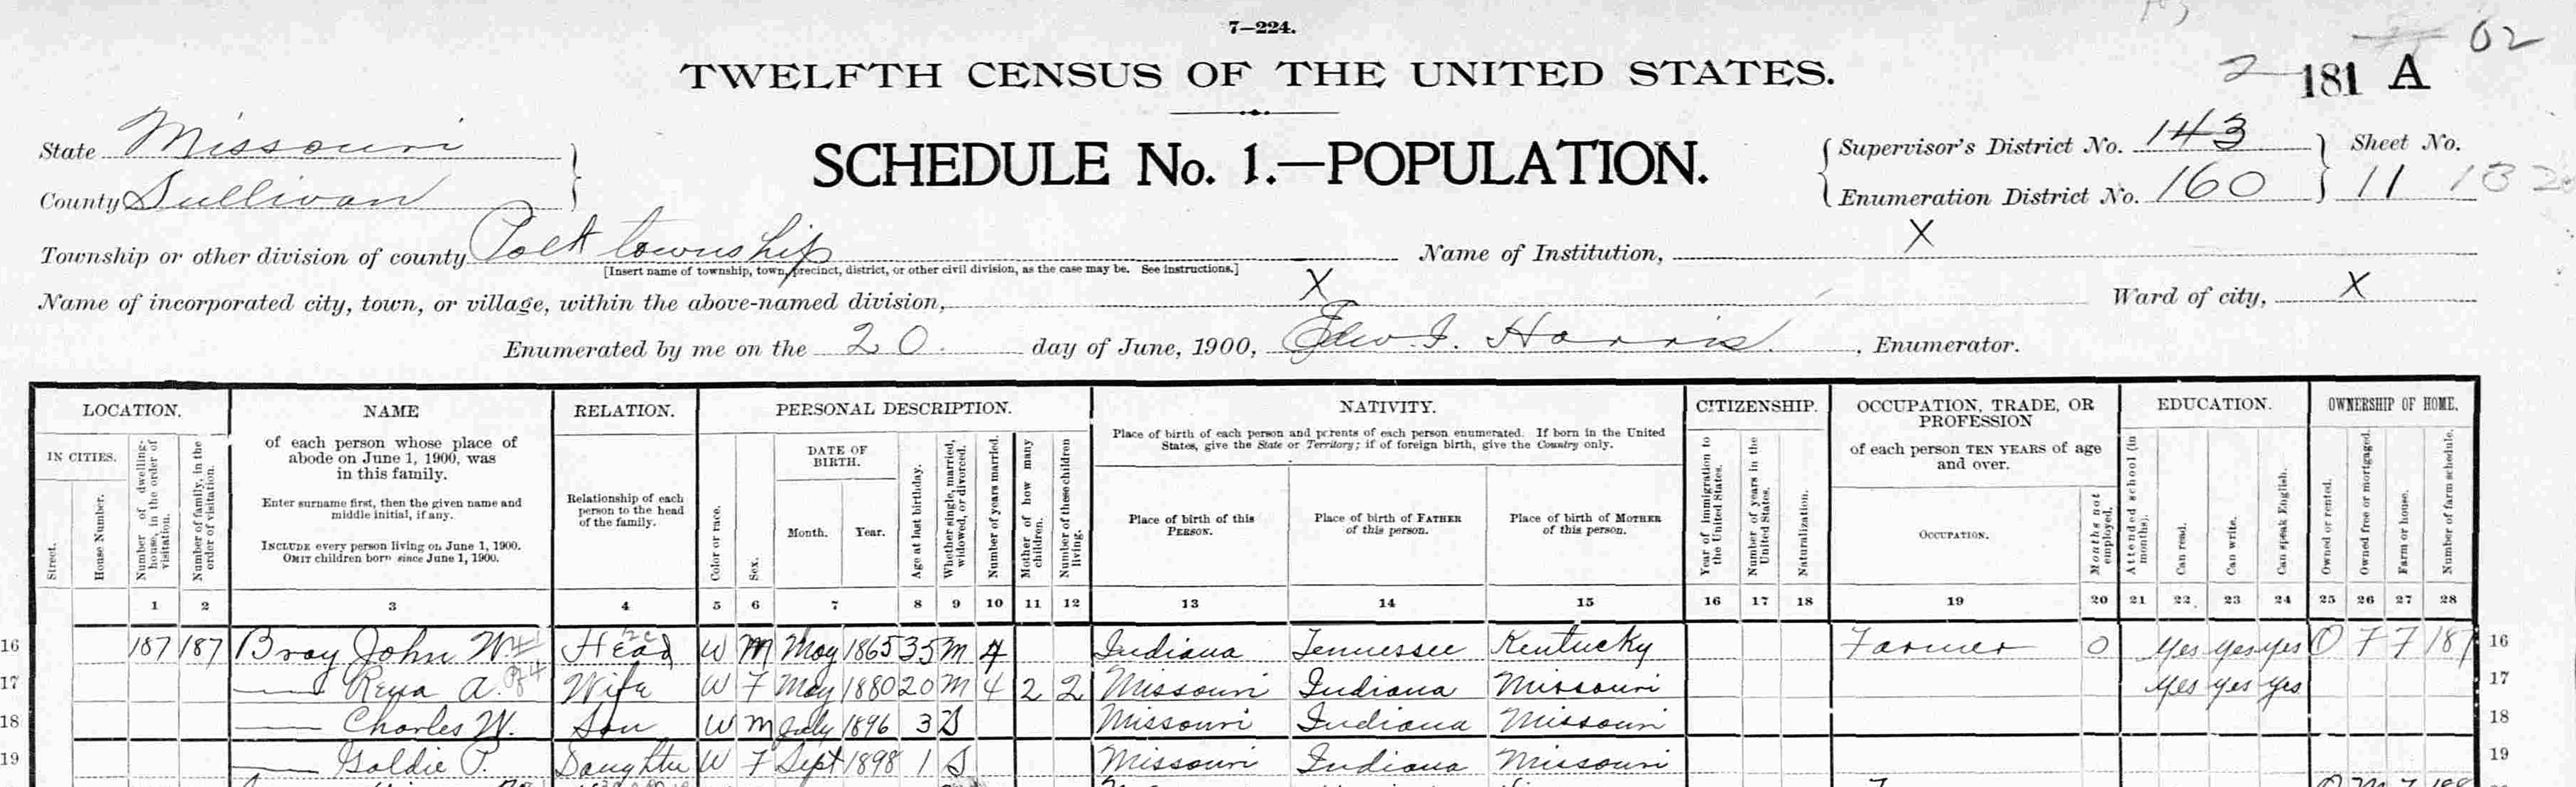 7—224.
TWELFTH CENSUS OF THE UNITED STATES.
62
2 181 A
SCHEDULE No. 1.—POPULATION.
State Missouri
County Sullivan
Supervisor's District No. 143
Enumeration District No. 160
Sheet No.
11
Township or other division of county Polk township
[Insert name of township, town, precinct, district, or other civil division, as the case may be. See instructions.]
Name of Institution, X
Name of incorporated city, town, or village, within the above-named division, X
Ward of city, X
Enumerated by me on the 20 day of June, 1900, Edw. I. Harris, Enumerator.
LOCATION.
IN CITIES.
Street.
House Number.
Number of dwelling-house, in the order of visitation.
Number of family, in the order of visitation.
NAME
of each person whose place of
abode on June 1, 1900, was
in this family.
Enter surname first, then the given name and
middle initial, if any.
INCLUDE every person living on June 1, 1900.
OMIT children born since June 1, 1900.
RELATION.
Relationship of each
person to the head
of the family.
PERSONAL DESCRIPTION.
Color or race.
Sex.
DATE OF
BIRTH.
Month.
Year.
Age at last birthday.
Whether single, married, widowed, or divorced.
Number of years married.
Mother of how many children.
Number of these children living.
NATIVITY.
Place of birth of each person and parents of each person enumerated. If born in the United
States, give the State or Territory; if of foreign birth, give the Country only.
Place of birth of this
PERSON.
Place of birth of FATHER
of this person.
Place of birth of MOTHER
of this person.
CITIZENSHIP.
Year of immigration to the United States.
Number of years in the United States.
Naturalization.
OCCUPATION, TRADE, OR
PROFESSION
of each person TEN YEARS of age
and over.
OCCUPATION.
Months not employed.
EDUCATION.
Attended school (in months).
Can read.
Can write.
Can speak English.
OWNERSHIP OF HOME.
Owned or rented.
Owned free or mortgaged.
Farm or house.
Number of farm schedule.
1 2 3 4 5 6 7 8 9 10 11 12 13 14 15 16 17 18 19 20 21 22 23 24 25 26 27 28
16 187 187 Bray John W. Head W M May 1865 35 M 4 Indiana Tennessee Kentucky Farmer 0 Yes yes yes O F F 187 16
17 — Rena A. Wife W F May 1880 20 M 4 2 2 Missouri Indiana Missouri yes yes yes 17
18 — Charles W. Son W M July 1896 3 S Missouri Indiana Missouri 18
19 — Goldie P. Daughter W F Sept 1898 1 S Missouri Indiana Missouri 19